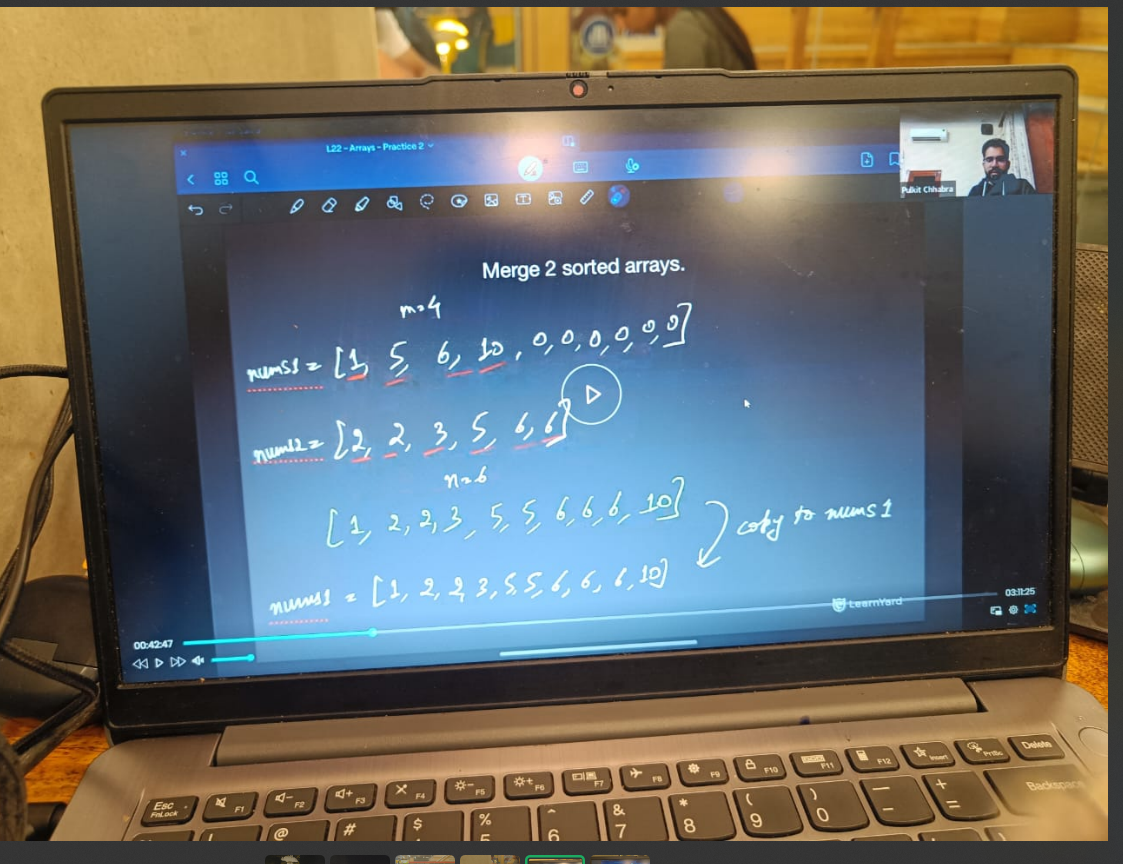 L22 - Arrays - Practice 2
Pulkit Chhabra
Merge 2 sorted arrays.
m=4
nums1 = [1, 5, 6, 10, 0, 0, 0, 0, 0, 0]
nums2 = [2, 2, 3, 5, 6, 6]
n=6
[1, 2, 2, 3, 5, 5, 6, 6, 6, 10]
copy to nums1
nums1 = [1, 2, 2, 3, 5, 5, 6, 6, 6, 10]
LearnYard
03:11:25
00:42:47
Esc F1 F2 F3 F4 F5 F6 F7 F8 F9 F10 F11 F12 Insert PrtSc Delete
FnLock
@ # $ % ^ & * ( ) _ + Backspace
5 6 7 8 9 0 - =